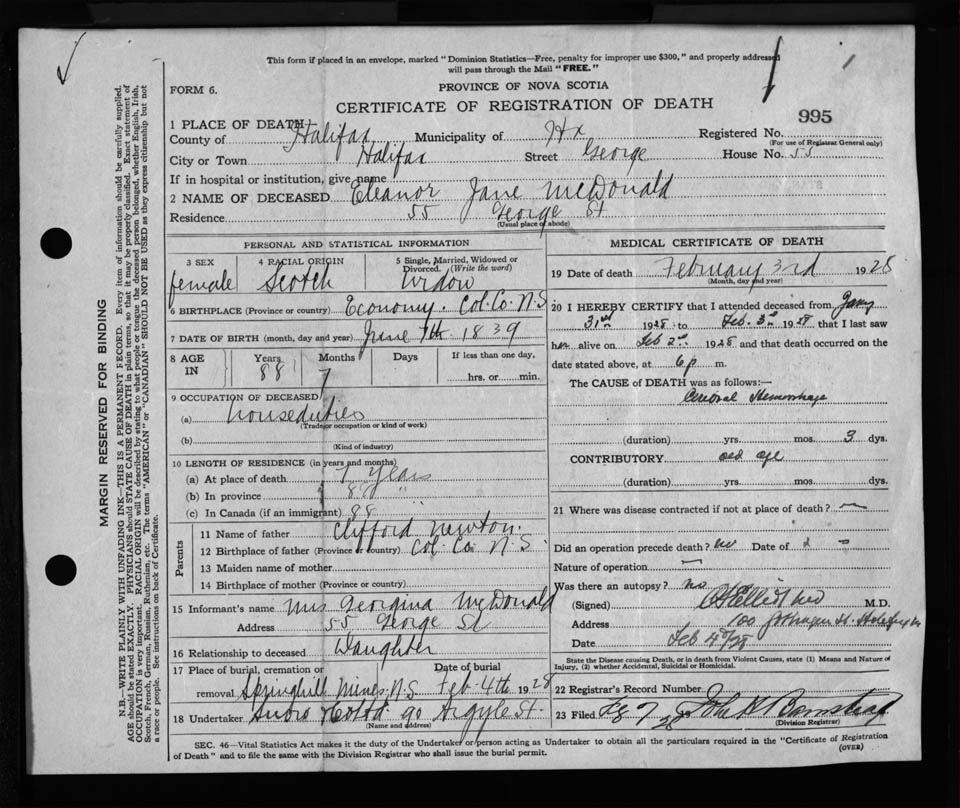 This form if placed in an envelope, marked "Dominion Statistics—Free, penalty for improper use $300," and properly addressed
will pass through the Mail "FREE."
FORM 6.
PROVINCE OF NOVA SCOTIA
CERTIFICATE OF REGISTRATION OF DEATH
995
1 PLACE OF DEATH
County of Halifax Municipality of Hx Registered No.
(For use of Registrar General only)
City or Town Halifax Street George House No. 55
If in hospital or institution, give name
2 NAME OF DECEASED Eleanor Jane McDonald
Residence 55 George St
(Usual place of abode)
PERSONAL AND STATISTICAL INFORMATION
3 SEX 4 RACIAL ORIGIN 5 Single, Married, Widowed or Divorced. (Write the word)
female Scotch Widow
6 BIRTHPLACE (Province or country) Economy. Col. Co. N.S
7 DATE OF BIRTH (month, day and year) June 7th 1839
8 AGE IN Years Months Days If less than one day,
88 7 hrs. or min.
9 OCCUPATION OF DECEASED
(a) houseduties
(Trade or occupation or kind of work)
(b)
(Kind of industry)
10 LENGTH OF RESIDENCE (in years and months)
(a) At place of death 7 years
(b) In province 88 "
(c) In Canada (if an immigrant) 88
Parents
11 Name of father Clifford Newton.
12 Birthplace of father (Province or country) Col. Co. N.S.
13 Maiden name of mother
14 Birthplace of mother (Province or country)
15 Informant's name Mrs Georgina McDonald
Address 55 George St
16 Relationship to deceased Daughter
17 Place of burial, cremation or Date of burial
removal Springhill Mines. N.S Feb. 4th 1928
18 Undertaker Snow & Co Ltd 90 Argyle St.
(Name and address)
MEDICAL CERTIFICATE OF DEATH
19 Date of death February 3rd 1928
(Month, day and year)
20 I HEREBY CERTIFY that I attended deceased from Jany
31st 1928 to Feb. 3rd 1928 that I last saw
her alive on Feb 2nd 1928 and that death occurred on the
date stated above, at 6 p m.
The CAUSE of DEATH was as follows:—
Cerebral Hemorrhage
(duration) yrs. mos. 3 dys.
CONTRIBUTORY old age
(duration) yrs. mos. dys.
21 Where was disease contracted if not at place of death? —
Did an operation precede death? no Date of —
Nature of operation —
Was there an autopsy? no
(Signed) M.D.
Address 100
Date Feb 4th/28
State the Disease causing Death, or in death from Violent Causes, state (1) Means and Nature of
Injury, (2) whether Accidental, Suicidal or Homicidal.
22 Registrar's Record Number
23 Filed John
(Division Registrar)
SEC. 46—Vital Statistics Act makes it the duty of the Undertaker or person acting as Undertaker to obtain all the particulars required in the "Certificate of Registration
of Death" and to file the same with the Division Registrar who shall issue the burial permit.
(OVER)
MARGIN RESERVED FOR BINDING
N.B.—WRITE PLAINLY WITH UNFADING INK—THIS IS A PERMANENT RECORD. Every item of information should be carefully supplied.
AGE should be stated EXACTLY. PHYSICIANS should STATE CAUSE OF DEATH in plain terms, so that it may be properly classified. Exact statement of
OCCUPATION is very important. RACIAL ORIGIN will be described by stating to what people or tongue the deceased person belonged, whether English, Irish,
Scotch, French, German, Russian, Ruthenian, etc. The terms "AMERICAN" or "CANADIAN" SHOULD NOT BE USED as they express citizenship but not
a race or people. See instructions on back of Certificate.